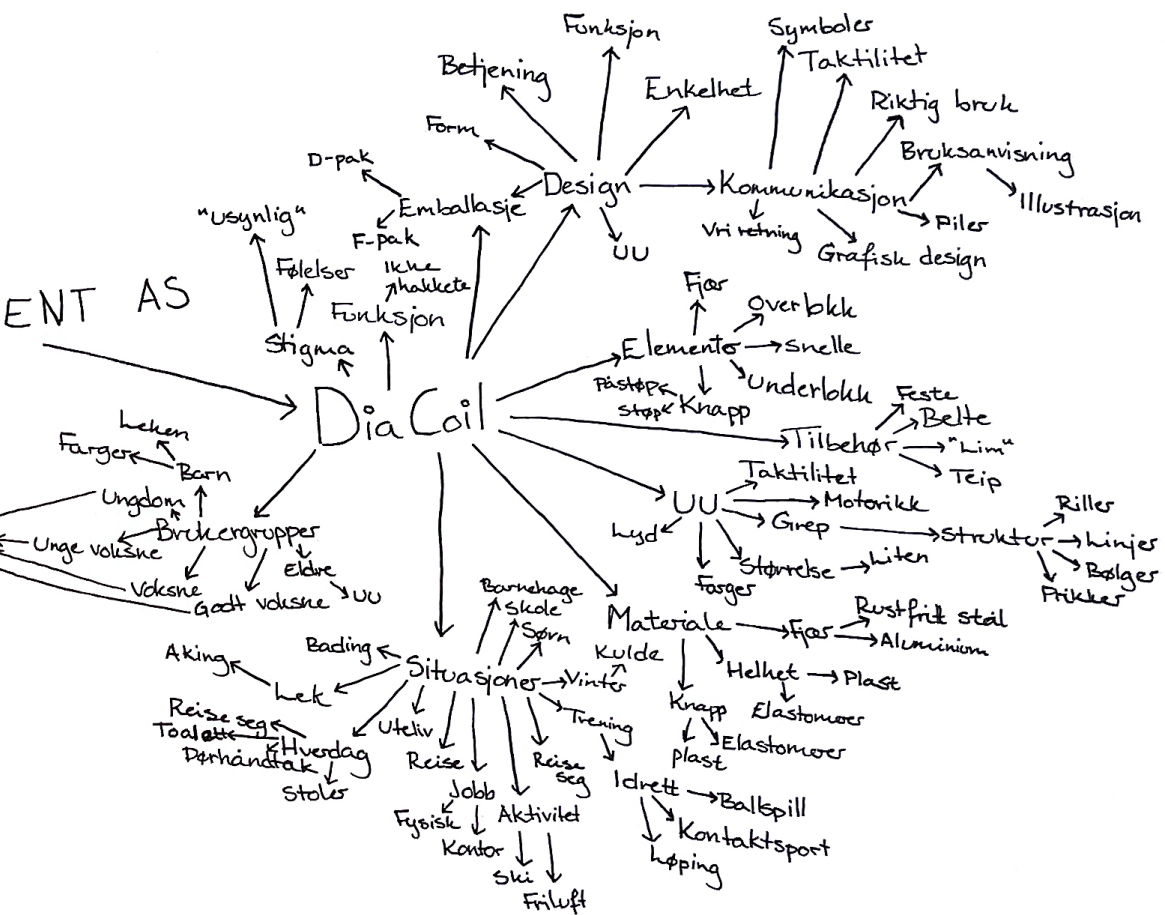 ENT AS
DiaCoil
Stigma
"Usynlig"
Følelser
Funksjon
Ikke
hakkete
Emballasje
D-pak
F-pak
Design
Form
Betjening
Funksjon
Enkelhet
UU
Kommunikasjon
Symboler
Taktilitet
Riktig bruk
Bruksanvisning
Illustrasjon
Piler
Grafisk design
Vri retning
Elementer
Fjær
Overlokk
Snelle
Underlokk
Knapp
Påstøp
Støp
Tilbehør
Feste
Belte
"Lim"
Teip
UU
Taktilitet
Motorikk
Grep
Struktur
Riller
Linjer
Bølger
Prikker
Størrelse
Liten
Farger
Lyd
Materiale
Fjær
Rustfritt stål
Aluminium
Helhet
Plast
Elastomer
Knapp
Plast
Elastomer
Situasjoner
Barnehage
Skole
Søvn
Vinter
Kulde
Trening
Idrett
Ballspill
Kontaktsport
Løping
Reise
seg
Aktivitet
Ski
Friluft
Jobb
Fysisk
Kontor
Reise
Uteliv
Hverdag
Reise seg
Toalett
Dørhåndtak
Stoler
Lek
Aking
Bading
Brukergrupper
Barn
Leken
Farger
Ungdom
Unge voksne
Voksne
Godt voksne
Eldre
UU